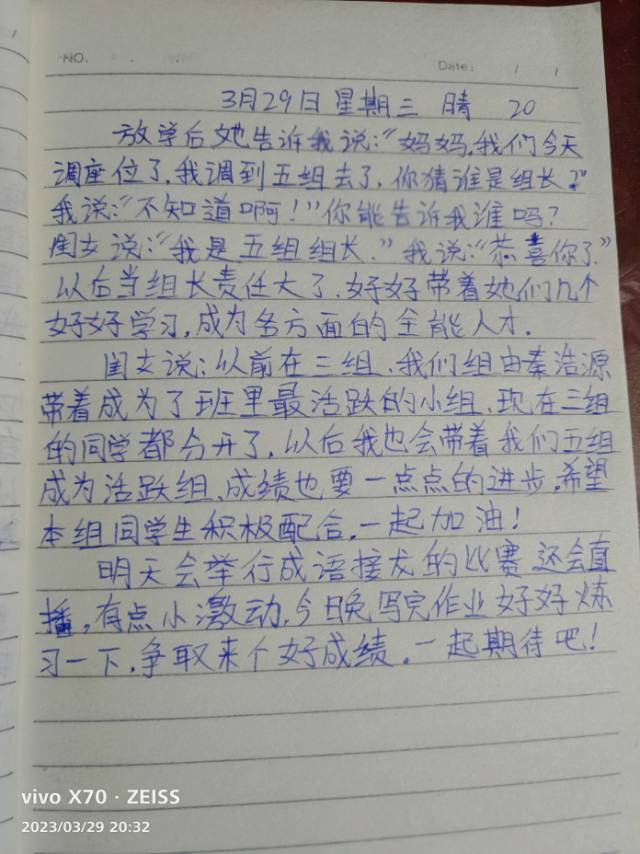 NO.
Date:
3月29日 星期三 晴 20
放学后她告诉我说:“妈妈,我们今天
调座位了,我调到五组去了,你猜谁是组长?”
我说:“不知道啊!”你能告诉我谁吗?
闺女说:“我是五组组长.”我说:“恭喜你了.”
以后当组长责任大了,好好带着她们几个
好好学习,成为各方面的全能人才.
闺女说:以前在三组,我们组由秦浩源
带着成为了班里最活跃的小组,现在三组
的同学都分开了,以后我也会带着我们五组
成为活跃组,成绩也要一点点的进步,希望
本组同学生积极配合,一起加油!
明天会举行成语接龙的比赛,还会直
播,有点小激动,今日晚写完作业好好炼
习一下,争取来个好成绩,一起期待吧!
vivo X70 · ZEISS
2023/03/29 20:32